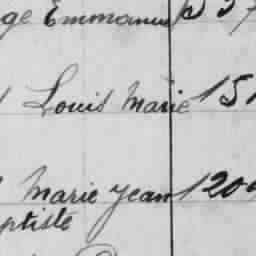 ge Emmanuel
Louis Marie 151
Marie Jean 1204
ptiste